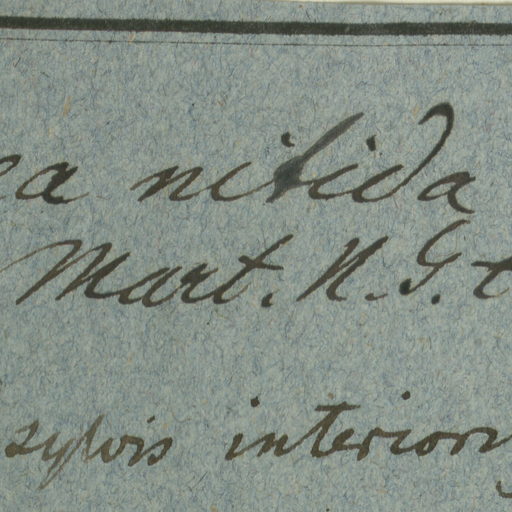 ea nitida
Mart. N. G. t
sylvis interiori